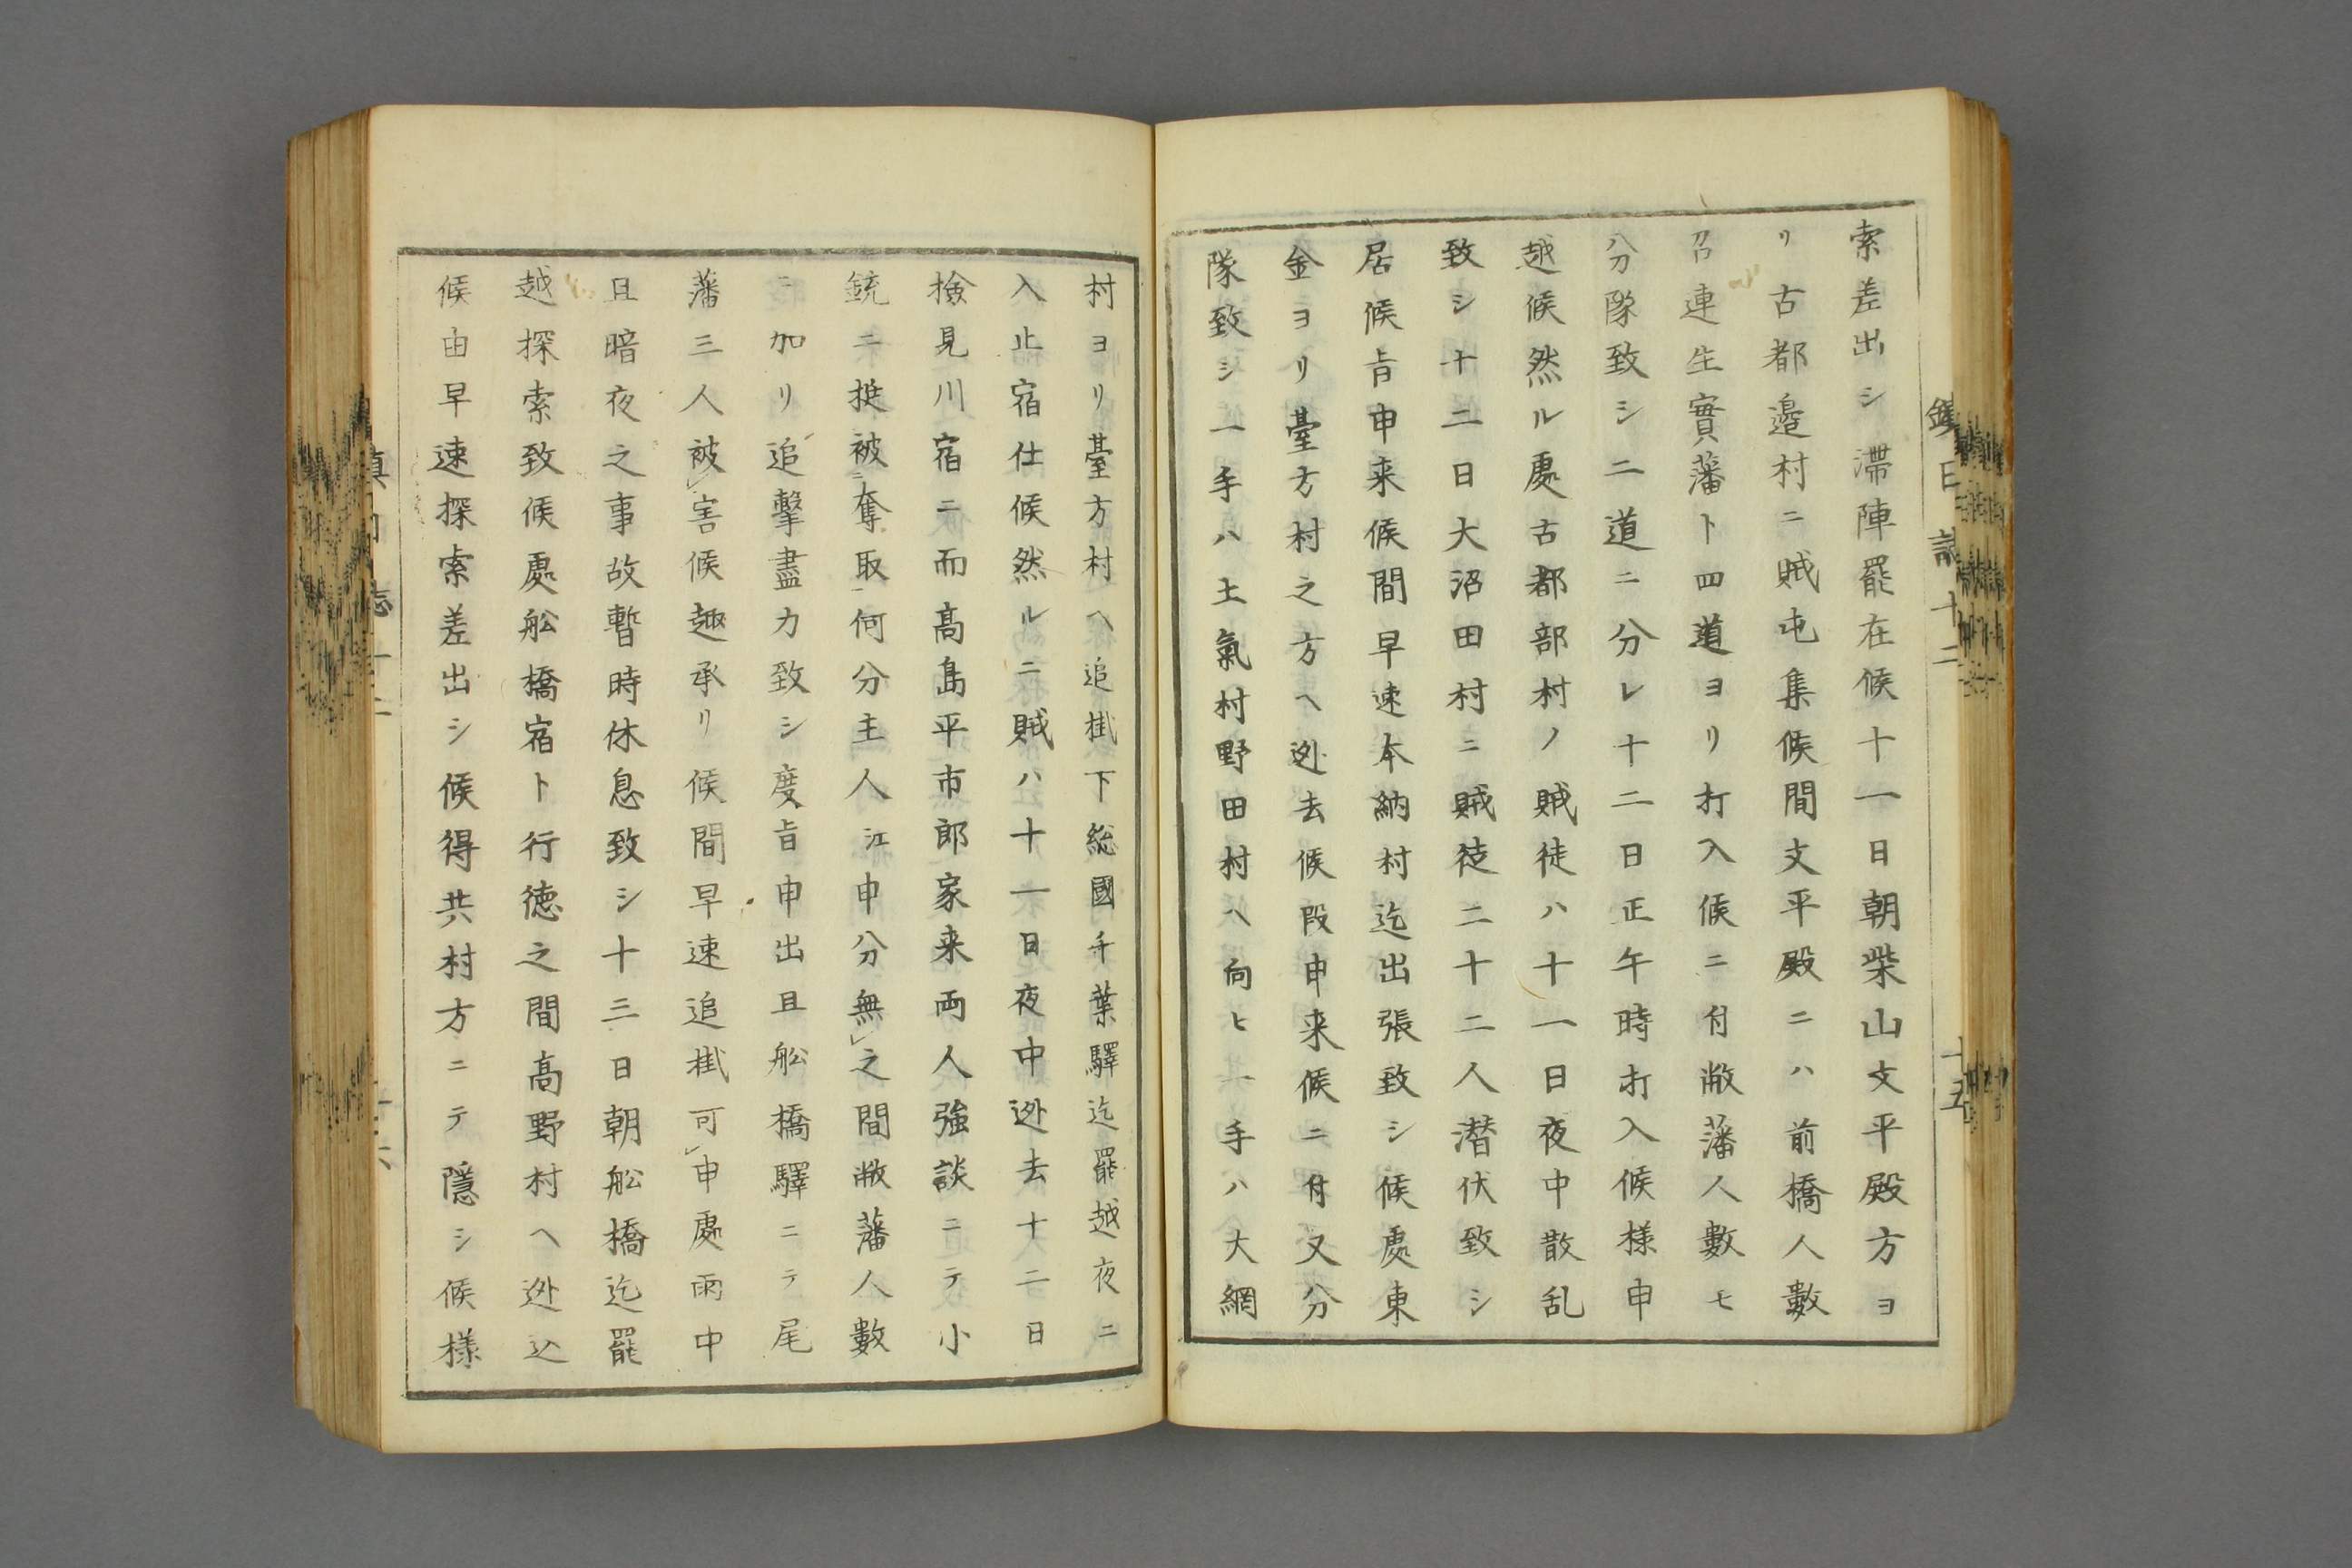 索差出シ滞陣罷在候十一日朝柴山文平殿方ヨ
リ古都邉村ニ賊屯集候間文平殿ニハ前橋人數
召連生實藩ト四道ヨリ打入候ニ付敝藩人數モ
分隊致シ二道ニ分レ十二日正午時打入候様申
越候然ル處古都部村ノ賊徒ハ十一日夜中散乱
致シ十二日大沼田村ニ賊徒二十二人潜伏致シ
居候旨申来候間早速本納村迄出張致シ候處東
金ヨリ臺方村之方ヘ迯去候段申来候ニ付又分
隊致シ一手ハ土氣村野田村ヘ向ヒ一手ハ大網
村ヨリ臺方村ヘ追掛下総國千葉驛迄罷越夜ニ
入止宿仕候然ルニ賊ハ十一日夜中迯去十二日
檢見川宿ニ而髙島平市郎家来両人強談ニテ小
銃ニ挺被奪取何分主人江申分無之間敝藩人數
ニ加リ追撃盡力致シ度旨申出且舩橋驛ニテ尾
藩三人被害候趣承リ候間早速追掛可申處雨中
且暗夜之事故暫時休息致シ十三日朝舩橋迄罷
越探索致候處舩橋宿ト行徳之間髙野村ヘ迯込
候由早速探索差出シ候得共村方ニテ隱シ候様